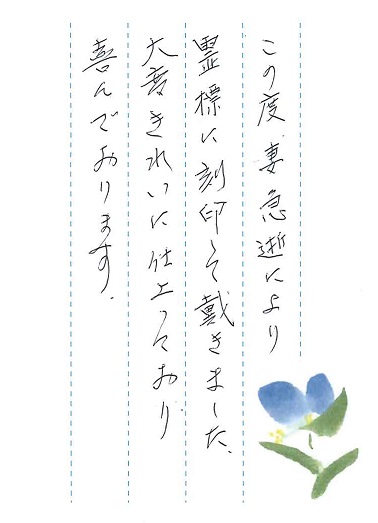 この度、妻急逝により
霊標に刻印して戴きました。
大変きれいに仕上っており
喜んでおります。